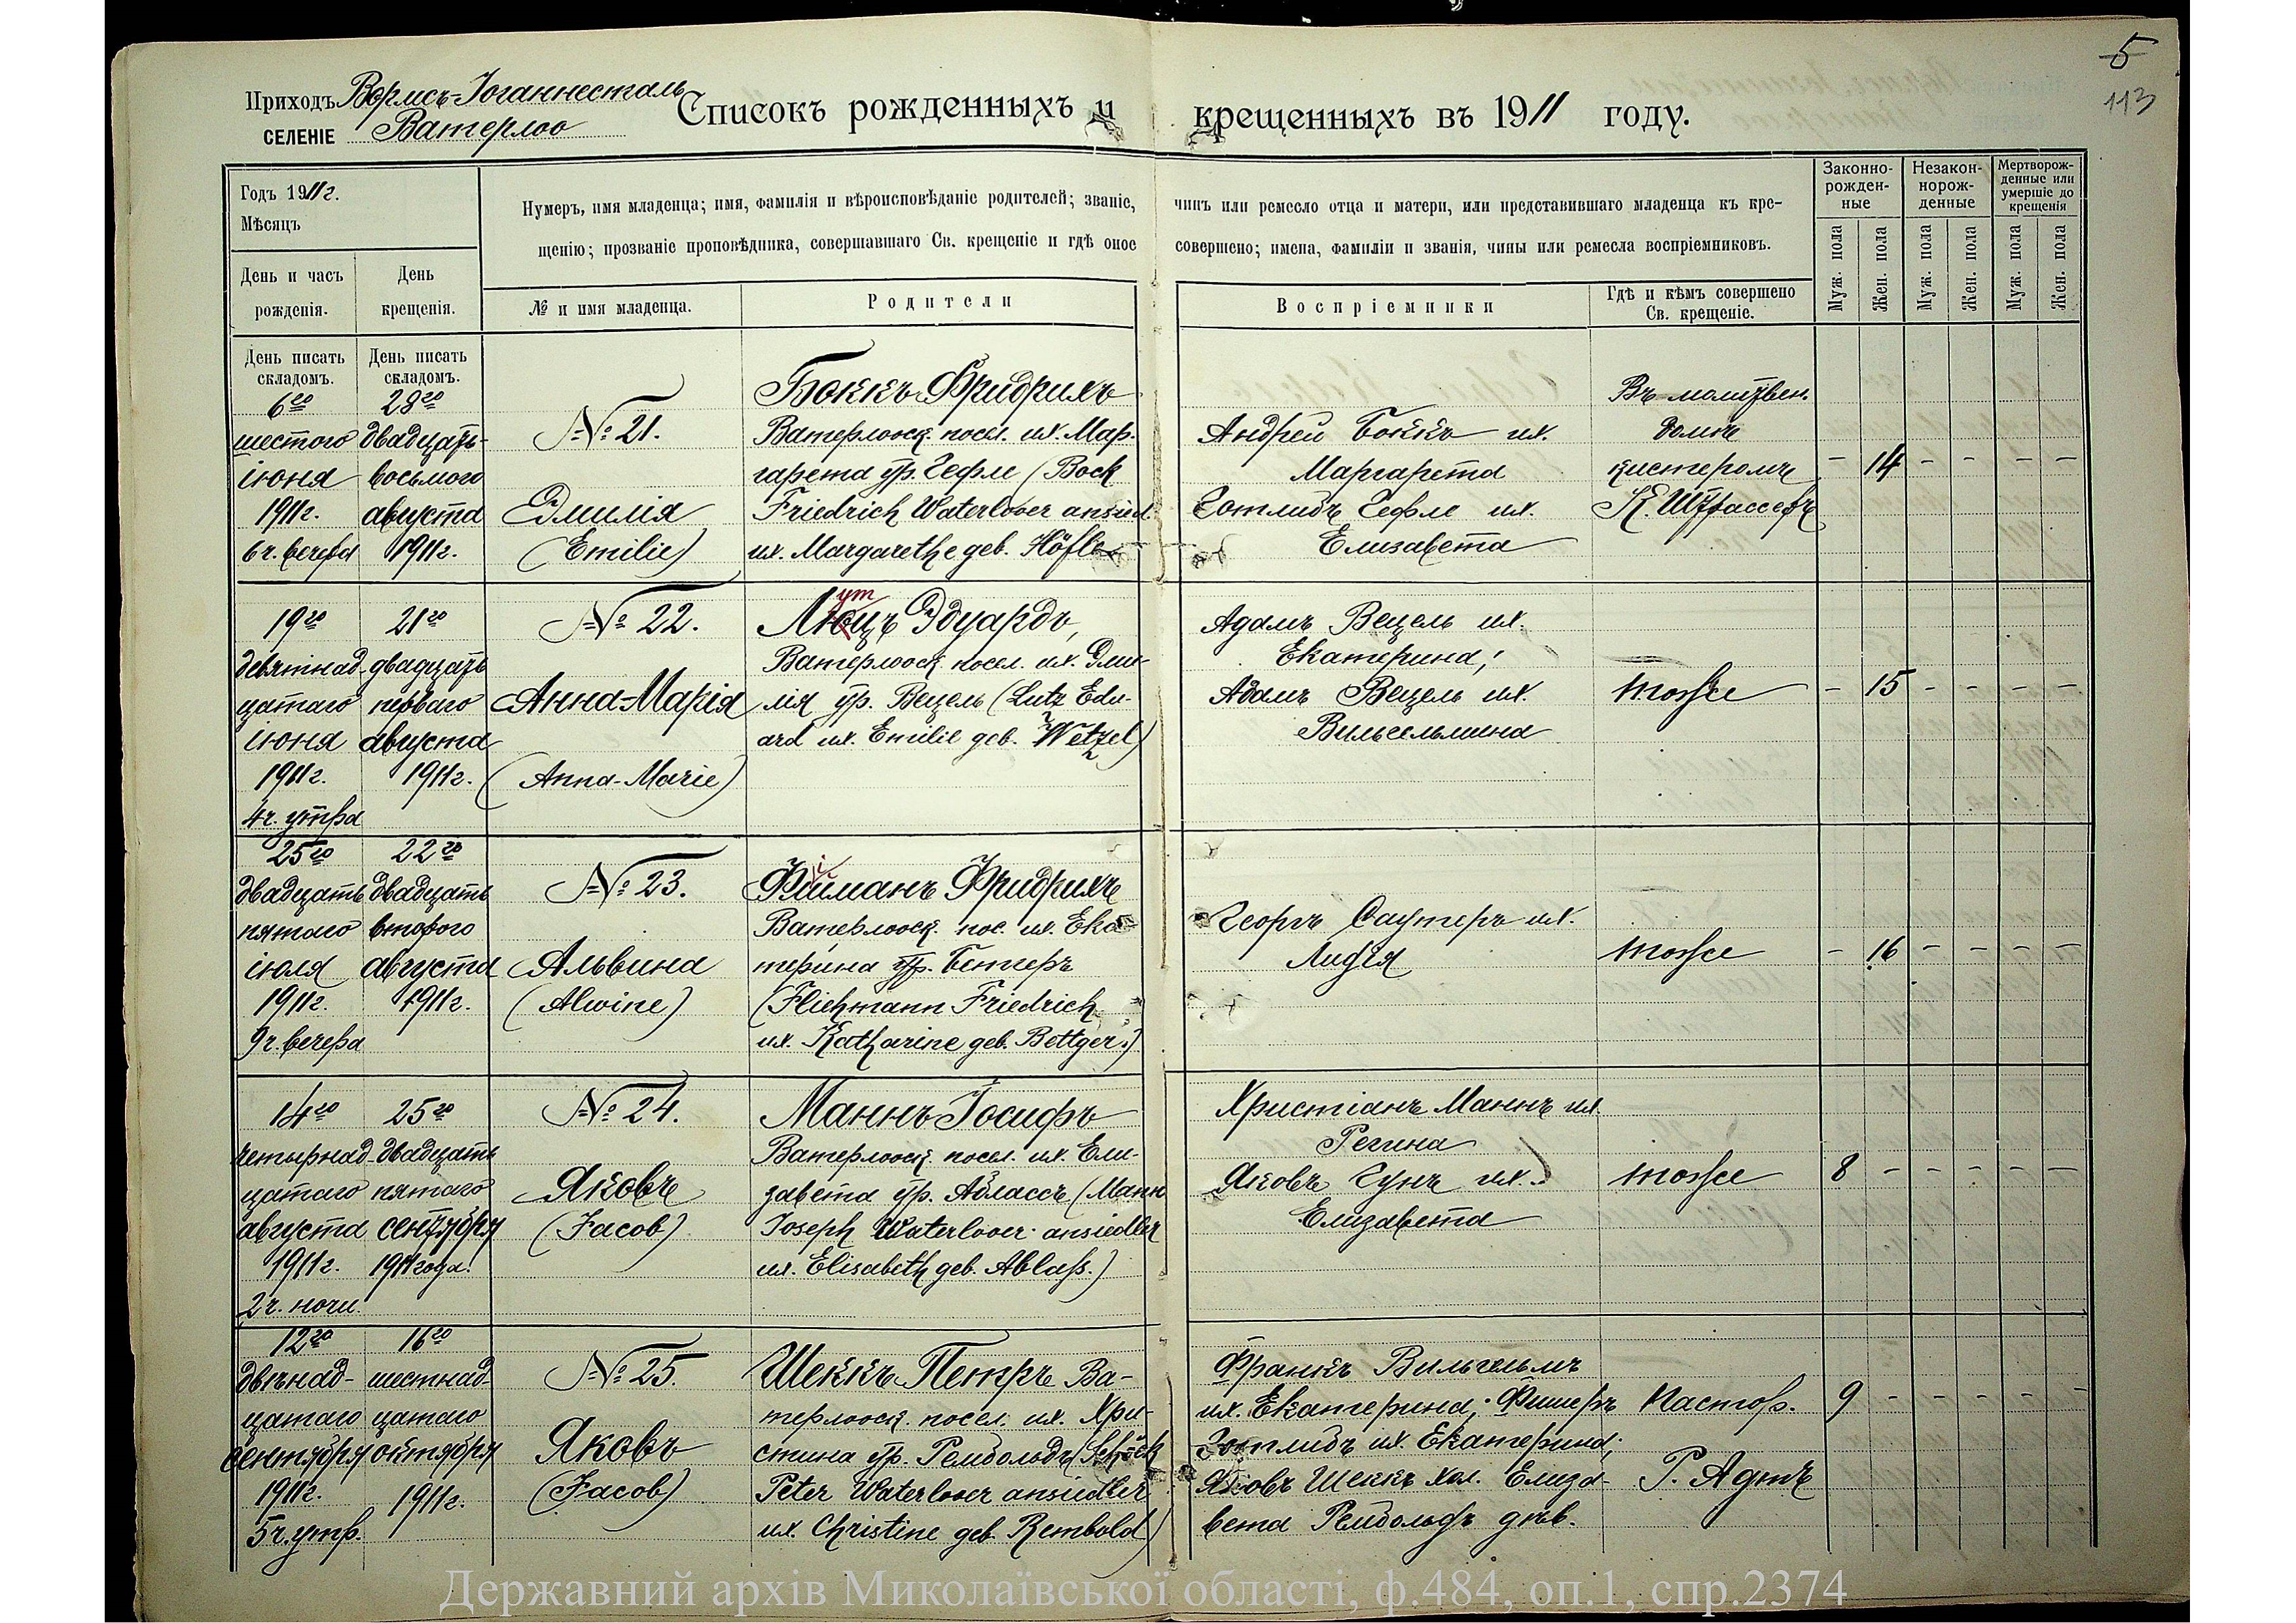 5
113
Приходъ Вормсъ-Іоганнесталь
селеніе Ватерлоо
Списокъ рожденныхъ и крещенныхъ въ 1911 году.
Годъ 1911 г.
Мѣсяцъ
День и часъ рожденія.
День крещенія.
Нумеръ, имя младенца; имя, фамилія и вѣроисповѣданіе родителей; званіе, чинъ или ремесло отца и матери, или представившаго младенца къ кре-
щенію; прозваніе проповѣдника, совершавшаго Св. крещеніе и гдѣ оное совершено; имена, фамиліи и званія, чины или ремесла воспріемниковъ.
№ и имя младенца.
Родители
Воспріемники
Гдѣ и кѣмъ совершено
Св. крещеніе.
Законно-
рожден-
ные
Незакон-
норож-
денные
Мертворож-
денные или
умершіе до
крещенія
Муж. пола
Жен. пола
Муж. пола
Жен. пола
Муж. пола
Жен. пола
День писать
складомъ.
6го
шестого
іюня
1911г.
6 ч. вечера
День писать
складомъ.
28го
двадцать-
восьмого
августа
1911г.
№ 21.
Эмилія
(Emilie)
Боккъ Фридрихъ
Ватерлооск. посел. их. Мар-
гарета ур. Гефле (Bock
Friedrich Waterlooer ansied.
их. Margarethe geb. Höfle
Андрей Боккъ их.
Маргарета
Готлибъ Гефле их.
Елизавета
Въ молитвен.
домѣ
кистеромъ
К. Штрассеръ
- 14 - - - -
19го
девятнад-
цатаго
іюня
1911г.
4 ч. утра
21го
двадцать
перваго
августа
1911г.
№ 22.
Анна-Марія
(Anna-Marie)
ут
Люцъ Эдуардъ,
Ватерлооск. посел. их. Эми-
лія ур. Вецель (Lutz Edu-
ard их. Emilie geb. Wetzel)
Адамъ Вецель их.
Екатерина;
Адамъ Вецель их.
Вильгельмина
тоже
- 15 - - - -
25го
двадцать
пятаго
іюля
1911г.
9 ч. вечера
22го
двадцать
второго
августа
1911г.
№ 23.
Альвина
(Alwine)
Фриdрихъ
Ватерлооск. пос. их. Ека-
терина ур. Бетгеръ
(Fliehmann Friedrich
их. Katharine geb. Bettger.)
Георгъ Саутеръ их.
Лидія
тоже
- 16 - - - -
14го
четырнад-
цатаго
августа
1911г.
2 ч. ночи.
25го
двадцать
пятаго
сентября
1911 года.
№ 24.
Яковъ
(Jacob)
Маннъ Іосифъ
Ватерлооск. посел. их. Ели-
завета ур. Аблассъ (Mann
Joseph Waterlooer ansiedler
их. Elisabeth geb. Ablaß.)
Христіанъ Маннъ их.
Регина
Яковъ Гунъ их.
Елизавета
тоже
8 - - - - -
12го
двѣнад-
цатаго
сентября
1911г.
5 ч. утр.
16го
шестнад-
цатаго
октября
1911г.
№ 25.
Яковъ
(Jacob)
Шеккъ Петръ Ва-
терлооск. посел. их. Хри-
стина ур. Рембольдъ (Schöck
Peter Waterlooer ansiedler
их. Christine geb. Rembold)
Франкъ Вильгельмъ
их. Екатерина; Фишеръ
Готлибъ их. Екатерина;
Яковъ Шеккъ хол. Елиза-
вета Рембольдъ дѣв.
Пастор.
Г. Адтъ
9 - - - - -
Державний архів Миколаївської області, ф.484, оп.1, спр.2374